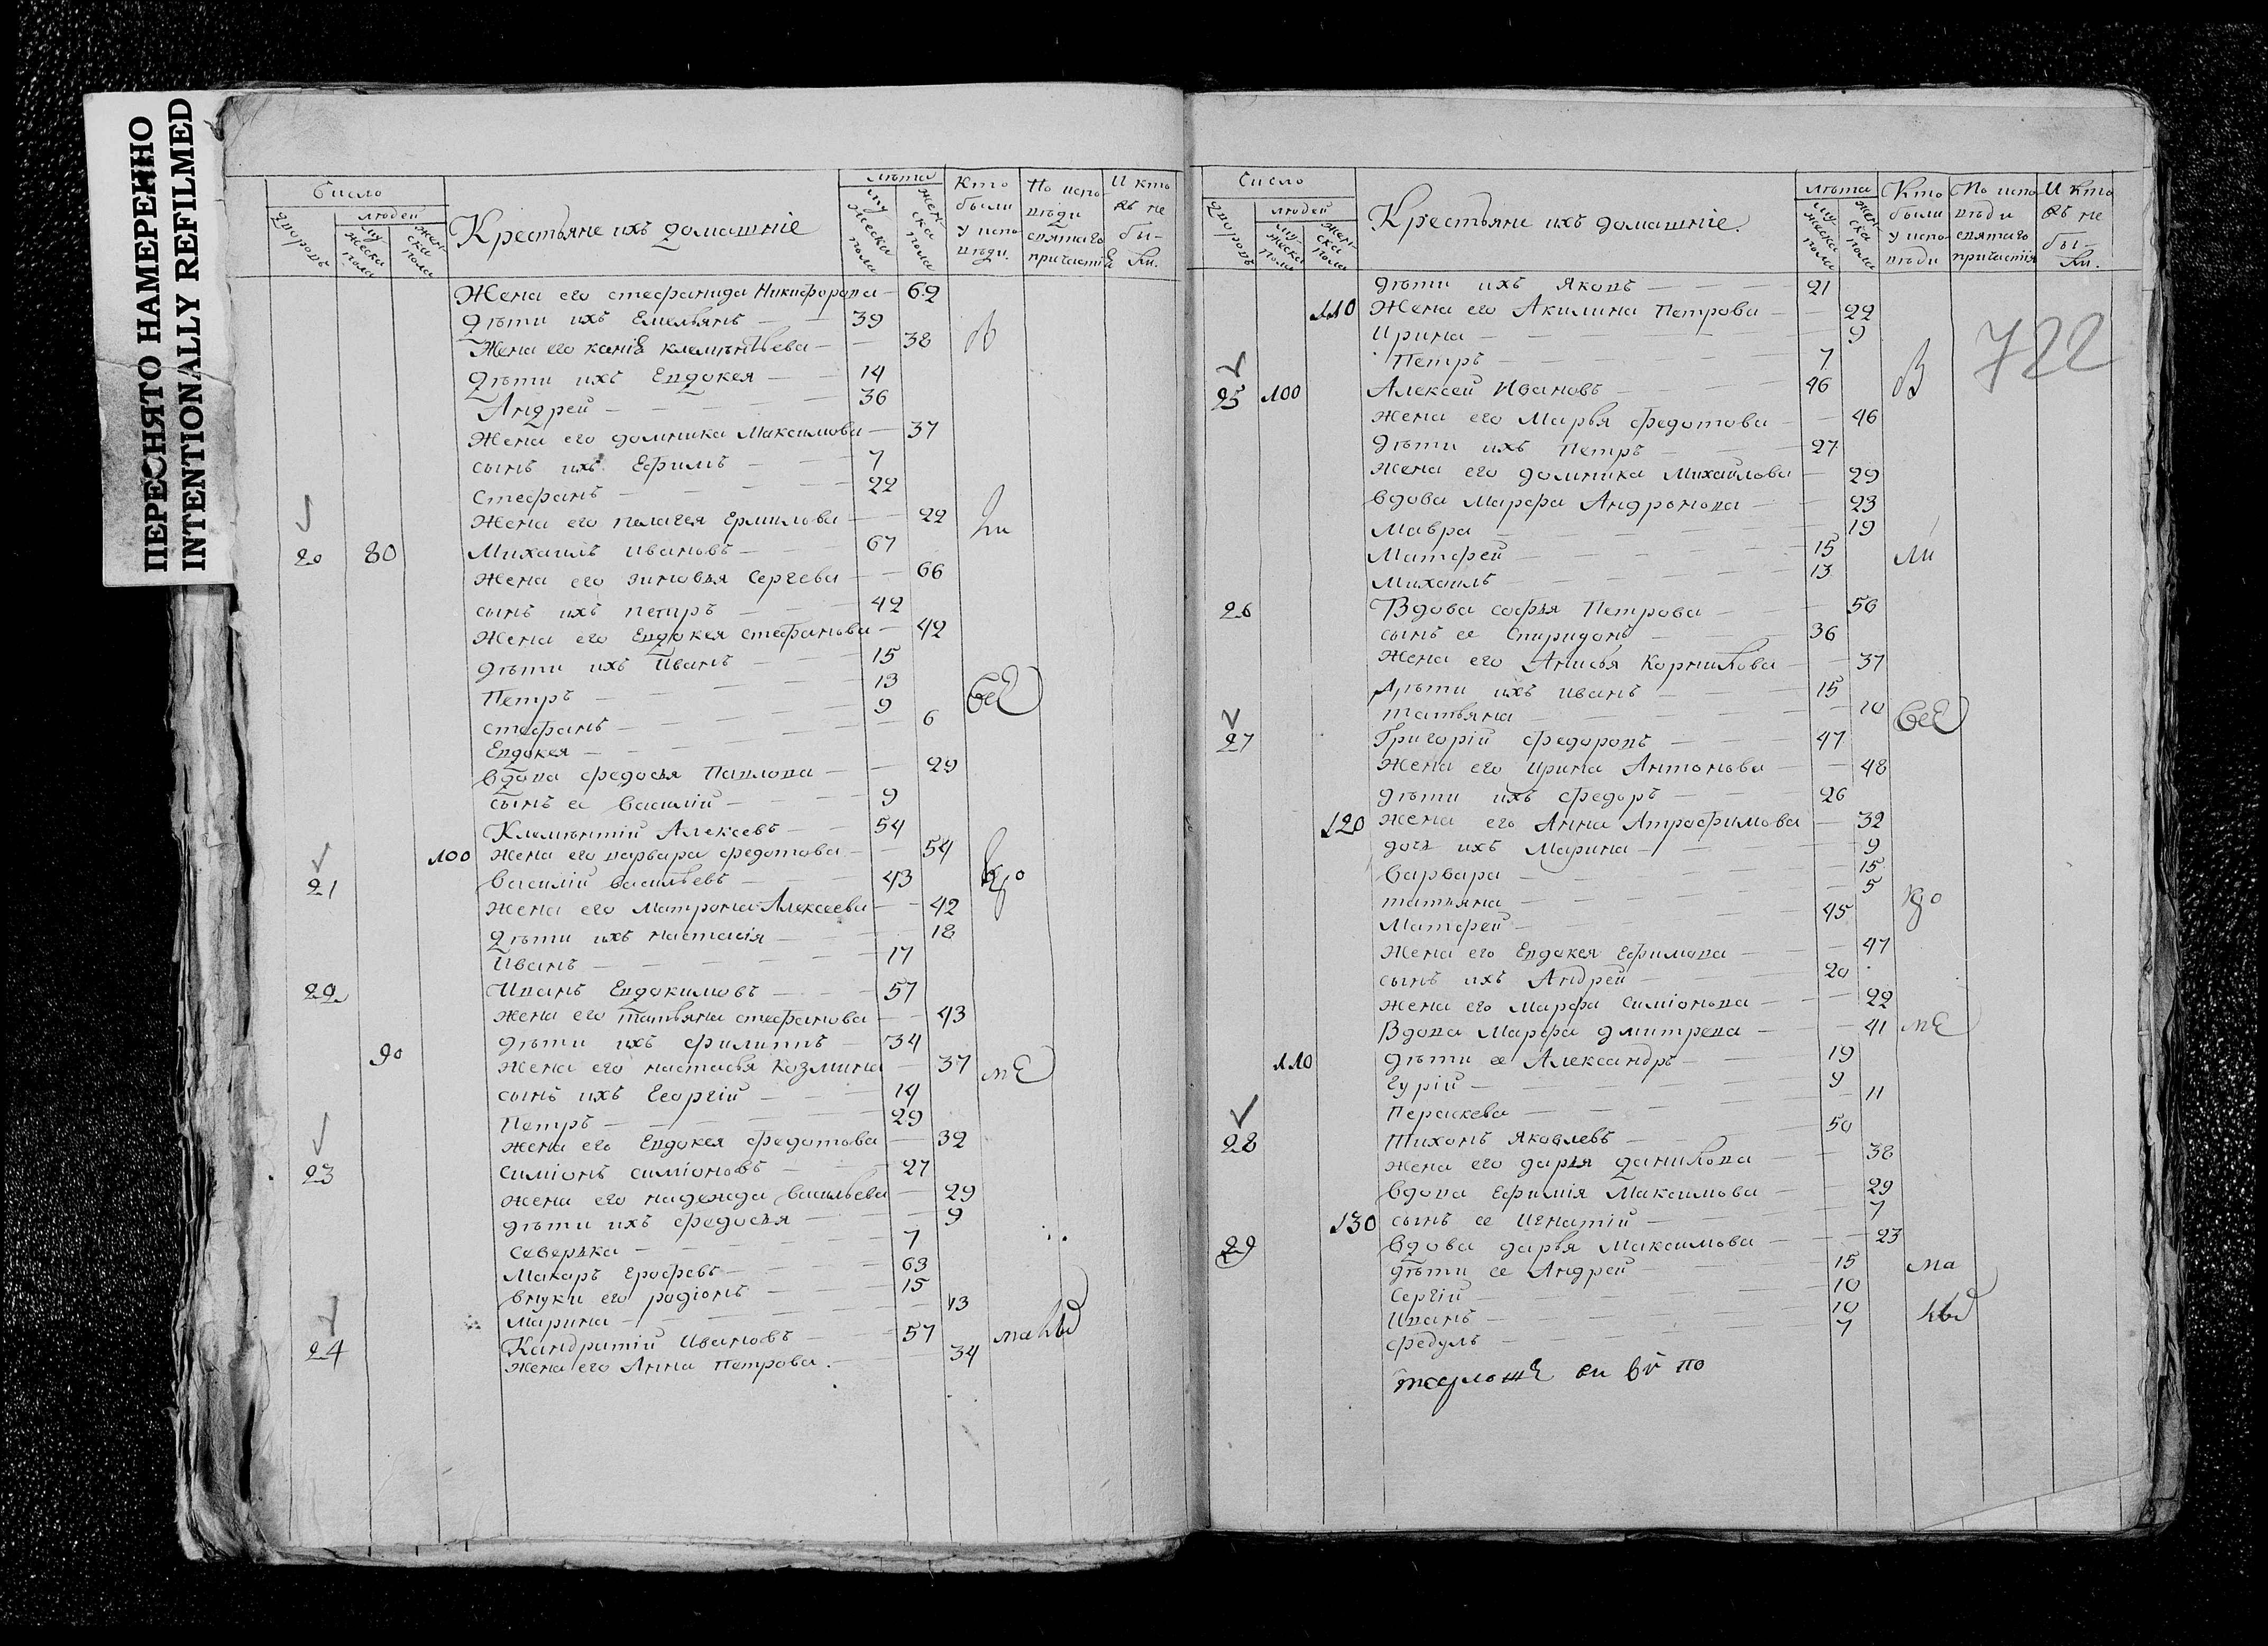 ПЕРЕСНЯТО НАМЕРЕННО
INTENTIONALLY REFILMED
Число
людей
дворовъ
мужеска пола
женска пола
Крестьяне ихъ домашніе
лѣта
мужеска пола
женска пола
Кто были у исповѣди.
По исповѣди святаго причастія
И кто въ не были.
Жена его стефанида Никифорова 62
дѣти ихъ Емельянъ 39
Жена его 38
дѣти ихъ Евдокея 14
Андрей 36
Жена его домника Максимова 37
сынъ ихъ Ефимъ 7
Стефанъ 22
Жена его пелагея Ермилова 22
20 80 Михаилъ ивановъ 67
Жена его зиновья Сергева 66
сынъ ихъ петръ 42
Жена его Евдокея стефанова 42
дѣти ихъ Иванъ 15
Петръ 13
стефанъ 9
Евдокея 6
вдова федосья Павлова 29
сынъ ее василій 9
Клементій Алексевъ 54
100 Жена его варвара федотова 54
21 василій васильевъ 43
жена его Матрона Алексеева 42
дѣти ихъ настасія 18
Иванъ 17
22 Иванъ Евдокимовъ 57
жена его татьяна стефанова 43
дѣти ихъ филиппъ 34
90 жена его настасья козмина 37
сынъ ихъ Георгій 14
Петръ 29
жена его Евдокея федотова 32
23 симіонъ симіоновъ 27
жена его надежда васильева 29
дѣти ихъ федосья 9
северька 7
Макаръ Ерофевъ 63
внуки его родіонъ 15
Марина 13
24 Кандратій Ивановъ 57
жена его Анна петрова. 34
Число
людей
дворовъ
мужеска пола
женска пола
Крестьяне ихъ домашніе.
лѣта
мужеска пола
женска пола
Кто были у исповѣди
По исповѣди святаго причастія
И кто въ не были.
722
дѣти ихъ Яковъ 21
110 Жена его Акилина Петрова 22
Ирина 9
Петръ 7
25 100 Алексей Ивановъ 46
жена его Марья федотова 46
дѣти ихъ Петръ 27
жена его домника Михайлова 29
вдова Марфа Андронова 23
Мавра 19
Матфей 15
Михаилъ 13
26 Вдова софья Петрова 56
сынъ ее Спиридонъ 36
Жена его Анисья Корнилова 37
Дѣти ихъ иванъ 15
татьяна 10
27 Григорій федоровъ 47
жена его Ирина Антонова 48
дѣти ихъ федоръ 26
120 жена его Анна Атрофимова 32
дочь ихъ Марина 9
варвара 15
татьяна 5
Матфей 45
Жена его Евдокея Ефимова 47
сынъ ихъ Андрей 20
жена его Марфа симіонова 22
Вдова Марфа дмитрева 41
110 дѣти ее Александръ 19
Гурій 9
Пераскева 11
28 Тихонъ Яковлевъ 50
жена его дарья данилова 38
вдова Ефимія Максимова 29
130 сынъ ее Игнатій 7
29 вдова дарья Максимова 23
дѣти ее Андрей 15
Сергій 10
Иванъ 10
федулъ 7